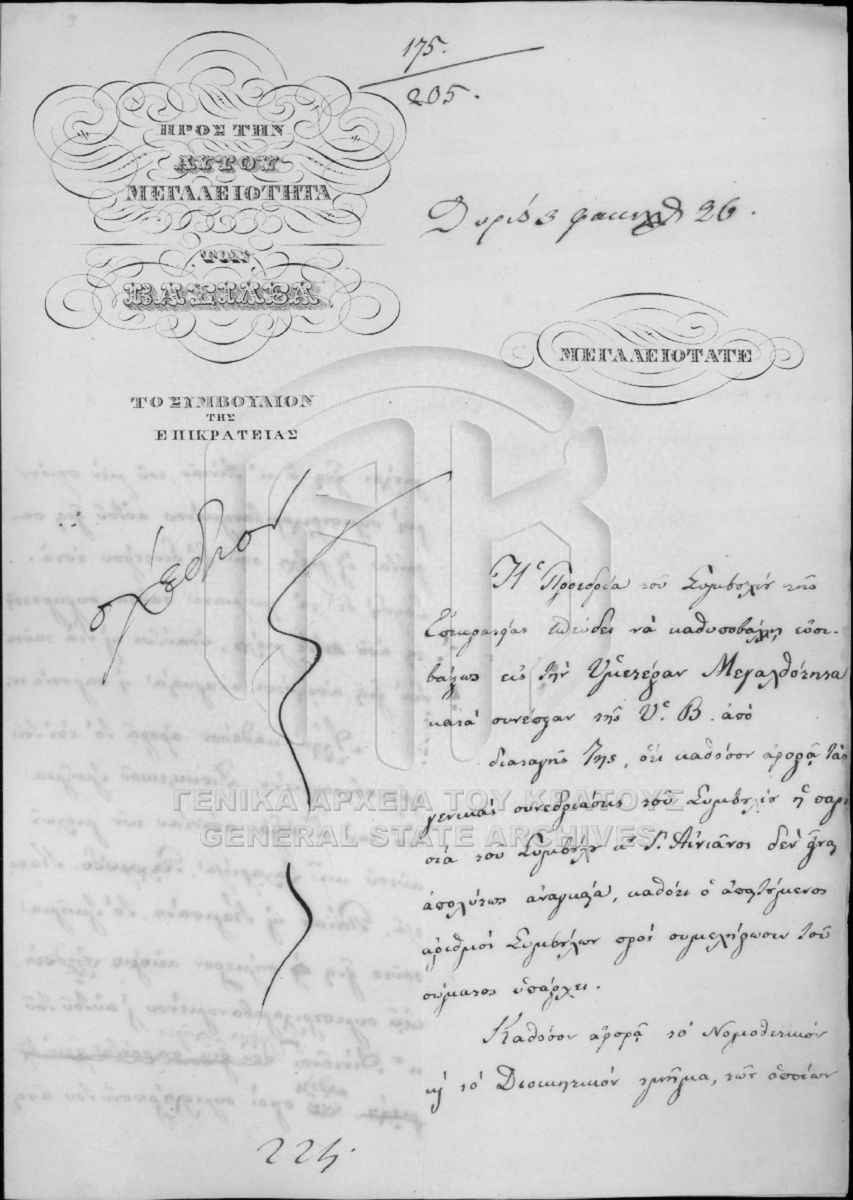 175.
205.
ΠΡΟΣ ΤΗΝ
ΑΥΤΟΥ
ΜΕΓΑΛΕΙΟΤΗΤΑ
ΤΟΝ
ΒΑΣΙΛΕΑ
26.
ΜΕΓΑΛΕΙΟΤΑΤΕ
ΤΟ ΣΥΜΒΟΥΛΙΟΝ
ΤΗΣ
ΕΠΙΚΡΑΤΕΙΑΣ
σχέδιον
Ἡ Προεδρία τοῦ Συμβουλίου τῆς
Ἐπικρατείας σπεύδει νὰ καθυποβάλῃ εὐσε-
βάστως εἰς τὴν Ὑμετέραν Μεγαλειότητα
κατὰ συνέπειαν τῆς Ὑ. Β. ἀπὸ
διαταγῆς Της, ὅτι καθόσον ἀφορᾷ τὰς
γενικὰς συνεδριάσεις τοῦ Συμβουλίου ἡ παρου-
σία τοῦ Συμβούλου κ. Γ. Αἰνιᾶνος δὲν εἶναι
ἀπολύτως ἀναγκαία, καθότι ὁ ἀπαιτούμενος
ἀριθμὸς Συμβούλων πρὸς συμπλήρωσιν τοῦ
σώματος ὑπάρχει.
Καθόσον ἀφορᾷ τὸ Νομοθετικὸν
καὶ τὸ Διοικητικὸν τμῆμα, τῶν ὁποίων
ΓΕΝΙΚΑ ΑΡΧΕΙΑ ΤΟΥ ΚΡΑΤΟΥΣ
GENERAL STATE ARCHIVES